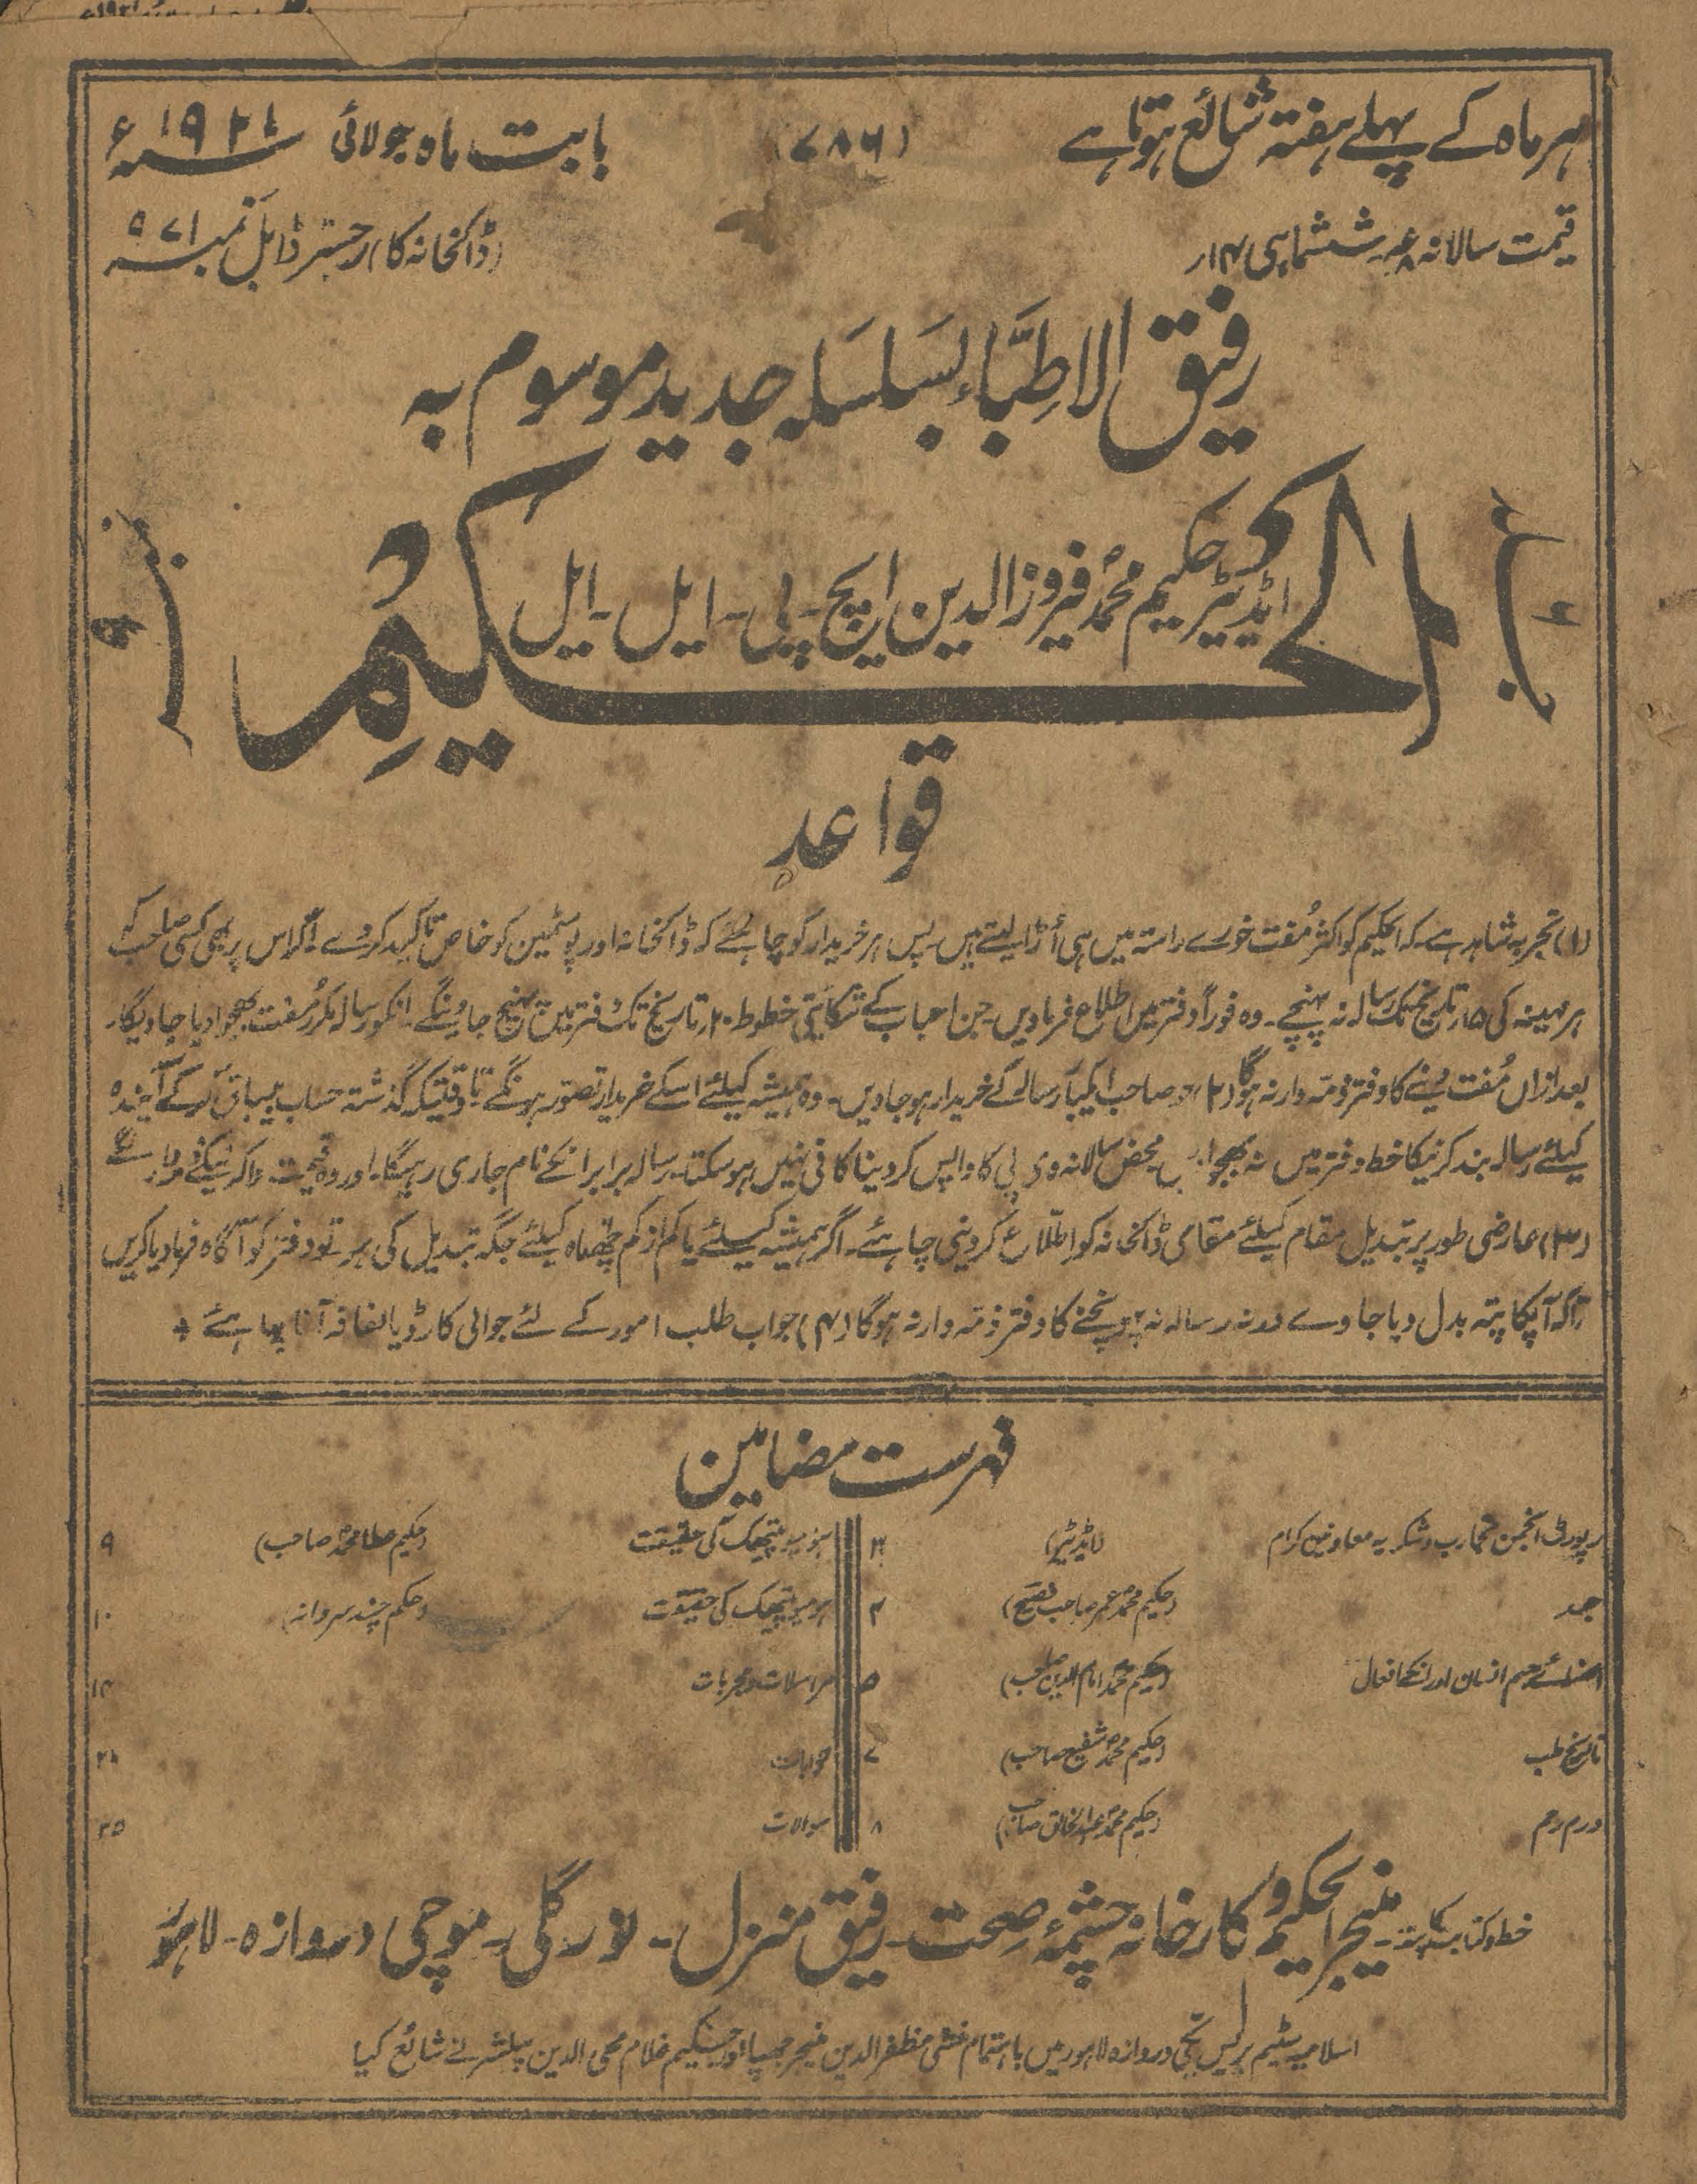 ہر ماہ کے پہلے ہفتہ شائع ہوتا ہے
(۷۸۶)
بابت ماہ جولائی سنہ ۱۹۲۱ء
قیمت سالانہ ششماہی ۱۴ار
(ڈاکخانہ کا) رجسٹرڈ ایل نمبر ۹۷۱
رفیق الاطبّاء بسلسلہ جدید موسوم بہ
الحکیم
ایڈیٹر حکیم محمد فیروز الدین ایچ۔ پی۔ ایل۔ ایل
جلد ۲
نمبر ۹
قواعد
(۱) تجربہ شاہد ہے۔ کہ الحکیم کو اکثر مُفت خورے راستہ میں ہی اُڑا لیتے ہیں۔ پس ہر خریدار کو چاہئے کہ ڈاکخانہ اور پوسٹمین کو خاص تاکید کر دے۔ اگر اس پر بھی کسی صاحب کو
ہر مہینہ کی ۱۵ تاریخ تک رسالہ نہ پہنچے۔ وہ فوراً دفتر میں اطلاع فرمادیں۔ جن احباب کے شکایتی خطوط ۲۰ تاریخ تک دفتر میں پہنچ جاویں گے۔ انکو رسالہ مکرر مُفت بھجوا دیا جاویگا۔
بعد ازاں مُفت دینے کا دفتر ذمہ دار نہ ہوگا (۲) جو صاحب ایکبار رسالہ کے خریدار ہو جاویں۔ وہ ہمیشہ کیلئے اسکے خریدار تصور ہونگے تاوقتیکہ گذشتہ حساب بیباق کر کے آیندہ
کیلئے رسالہ بند کرنیکا خط دفتر میں نہ بھجوا محض سالانہ وی پی کا واپس کر دینا کافی نہیں ہو سکتا۔ رسالہ برابر انکے نام جاری رہیگا۔ اور وہ قیمت ادا کرنیکے
(۳) عارضی طور پر تبدیل مقام کیلئے مقامی ڈاکخانہ کو اطلاع کر دینی چاہئے۔ اگر ہمیشہ کیلئے یا کم از کم چھ ماہ کیلئے جگہ تبدیل کی ہو۔ تو دفتر کو آگاہ فرما دیا کریں
تاکہ آپکا پتہ بدل دیا جاوے ورنہ رسالہ نہ پہونچنے کا دفتر ذمہ دار نہ ہوگا (۴) جواب طلب امور کے لئے جوابی کارڈ یا لفافہ آنا چاہئے +
فہرست مضامین
رپورٹ انجمن تجارب و شکریہ معاونین کرام (ایڈیٹر) ۲
حمد (حکیم محمد عمر صاحب فصیح) ۴
اعضائے جسم انسان اور انکے افعال (حکیم محمد امام الدین صاحب) ۵
تاریخ طب (حکیم محمد شفیع صاحب) ۷
ورم رحم (حکیم محمد عبد الخالق صاحب) ۸
ہومیوپیتھک کی حقیقت (حکیم عطا محمد صاحب) ۹
ہومیوپیتھک کی حقیقت (حکیم چند سروانہ) ۱۰
مراسلات و مجربات ۱۲
جوابات
سوالات ۲۵
خط و کتابت کا پتہ۔ منیجر الحکیم و کارخانہ چشمۂ صحت۔ رفیق منزل۔ نور گلی۔ موچی دروازہ۔ لاہور
اسلامیہ سٹیم پریس دروازہ لاہور میں باہتمام منشی مظفر الدین منیجر چھپا اور حکیم غلام محی الدین پبلشر نے شائع کیا